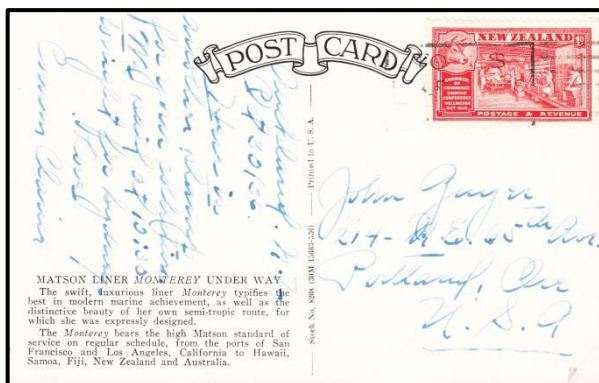 POST CARD
NEW ZEALAND
1D
CHAMBER
OF
COMMERCE
EMPIRE
CONFERENCE
WELLINGTON
OCT 1936
POSTAGE & REVENUE
Here is
another stamp
for your collection
We sail at 10:30
tonight for Sydney
John
214- N.E. 65th Ave.
Portland, Ore
U. S. A
Printed in U. S. A.
MATSON LINER MONTEREY UNDER WAY
The swift, luxurious liner Monterey typifies the
best in modern marine achievement, as well as the
distinctive beauty of her own semi-tropic route, for
which she was expressly designed.
The Monterey bears the high Matson standard of
service on regular schedule, from the ports of San
Francisco and Los Angeles, California to Hawaii,
Samoa, Fiji, New Zealand and Australia.